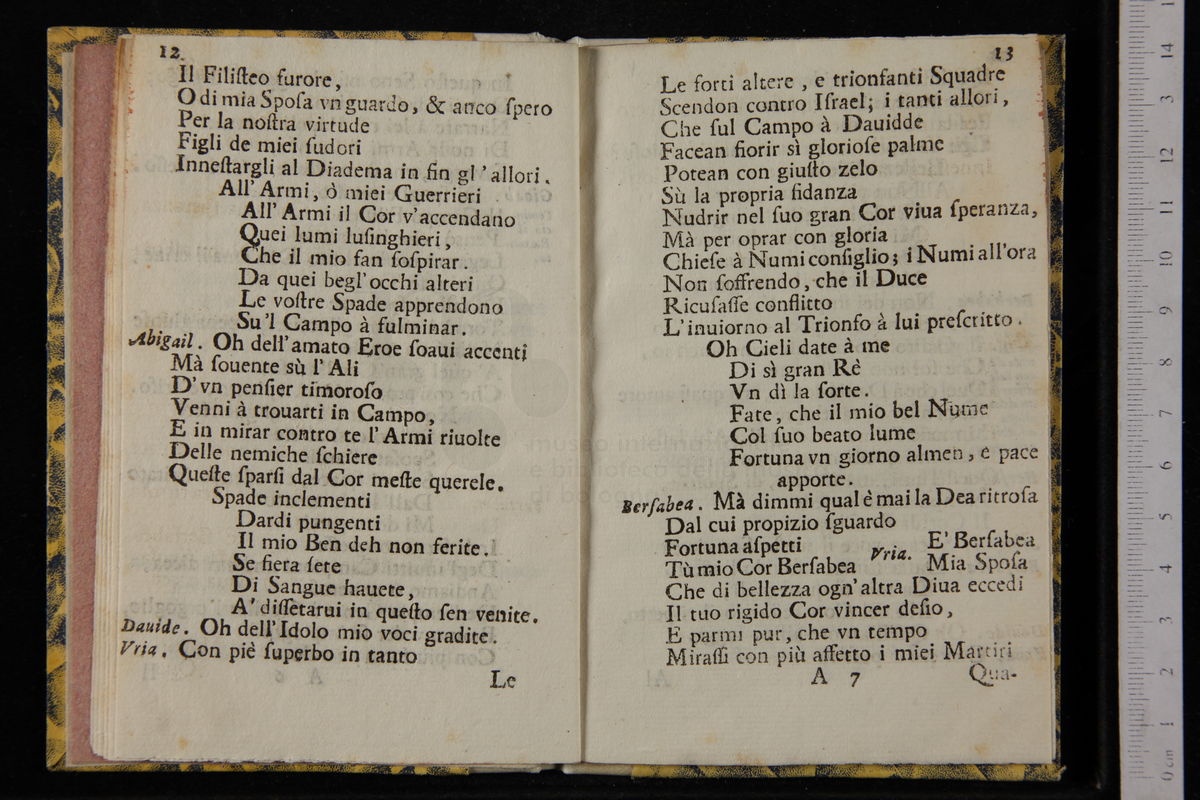 12
Il Filiſteo furore,
O di mia Spoſa vn guardo, & anco ſpero
Per la noſtra virtude
Figli de miei ſudori
Inneſtargli al Diadema in fin gl'allori.
All' Armi, ò miei Guerrieri
All' Armi il Cor v'accendano
Quei lumi luſinghieri,
Che il mio fan ſoſpirar.
Da quei begl'occhi alteri
Le voſtre Spade apprendono
Su'l Campo à fulminar.
Abigail. Oh dell'amato Eroe ſoaui accenti
Mà ſouente sù l'Ali
D'vn penſier timoroſo
Venni à trouarti in Campo,
E in mirar contro te l'Armi riuolte
Delle nemiche ſchiere
Queſte ſparſi dal Cor meſte querele.
Spade inclementi
Dardi pungenti
Il mio Ben deh non ferite.
Se fiera ſete
Di Sangue hauete,
A' diſſetarui in queſto ſen venite.
Dauide. Oh dell'Idolo mio voci gradite.
Vria. Con piè ſuperbo in tanto
Le
13
Le forti altere, e trionfanti Squadre
Scendon contro Iſrael; i tanti allori,
Che ſul Campo à Dauidde
Facean fiorir sì glorioſe palme
Potean con giuſto zelo
Sù la propria fidanza
Nudrir nel ſuo gran Cor viua ſperanza,
Mà per oprar con gloria
Chieſe à Numi conſiglio; i Numi all'ora
Non ſoffrendo, che il Duce
Ricuſaſſe conflitto
L'inuiorno al Trionfo à lui preſcritto.
Oh Cieli date à me
Di sì gran Rè
Vn dì la ſorte.
Fate, che il mio bel Nume
Col ſuo beato lume
Fortuna vn giorno almen, e pace
apporte.
Berſabea. Mà dimmi qual è mai la Dea ritroſa
Dal cui propizio ſguardo
Fortuna aſpetti Vria. E' Berſabea
Tù mio Cor Berſabea Mia Spoſa
Che di bellezza ogn'altra Diua eccedi
Il tuo rigido Cor vincer deſio,
E parmi pur, che vn tempo
Miraſſi con più affetto i miei Martiri
A 7 Qua-